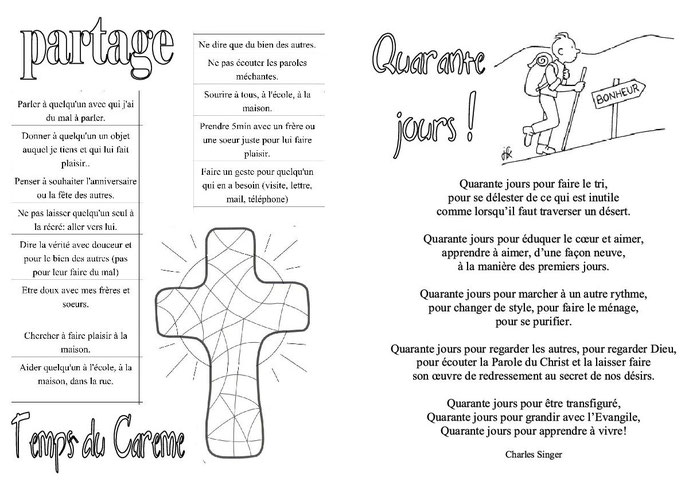 partage
Parler à quelqu'un avec qui j'ai
du mal à parler.
Donner à quelqu'un un objet
auquel je tiens et qui lui fait
plaisir..
Penser à souhaiter l'anniversaire
ou la fête des autres.
Ne pas laisser quelqu'un seul à
la récré: aller vers lui.
Dire la vérité avec douceur et
pour le bien des autres (pas
pour leur faire du mal)
Etre doux avec mes frères et
soeurs.
Chercher à faire plaisir à la
maison.
Aider quelqu'un à l'école, à la
maison, dans la rue.
Temps du Careme
Ne dire que du bien des autres.
Ne pas écouter les paroles
méchantes.
Sourire à tous, à l'école, à la
maison.
Prendre 5min avec un frère ou
une soeur juste pour lui faire
plaisir.
Faire un geste pour quelqu'un
qui en a besoin (visite, lettre,
mail, téléphone)
Quarante
jours !
BONHEUR
Quarante jours pour faire le tri,
pour se délester de ce qui est inutile
comme lorsqu'il faut traverser un désert.
Quarante jours pour éduquer le cœur et aimer,
apprendre à aimer, d'une façon neuve,
à la manière des premiers jours.
Quarante jours pour marcher à un autre rythme,
pour changer de style, pour faire le ménage,
pour se purifier.
Quarante jours pour regarder les autres, pour regarder Dieu,
pour écouter la Parole du Christ et la laisser faire
son œuvre de redressement au secret de nos désirs.
Quarante jours pour être transfiguré,
Quarante jours pour grandir avec l'Evangile,
Quarante jours pour apprendre à vivre!
Charles Singer